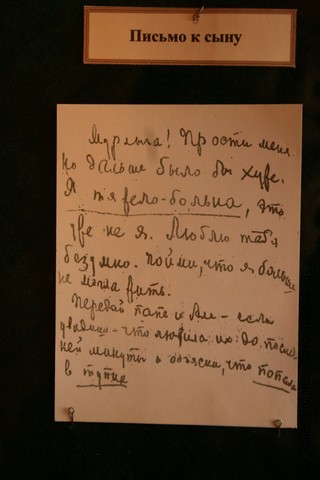 Письмо к сыну
Мурлыга! Прости меня
но дальше было бы хуже.
Я тяжело-больна, это
уже не я. Люблю тебя
безумно. Пойми, что я больше
не могла жить.
Передай папе и Але - если
увидишь - что любила их до послед-
ней минуты и объясни, что попала
в тупик